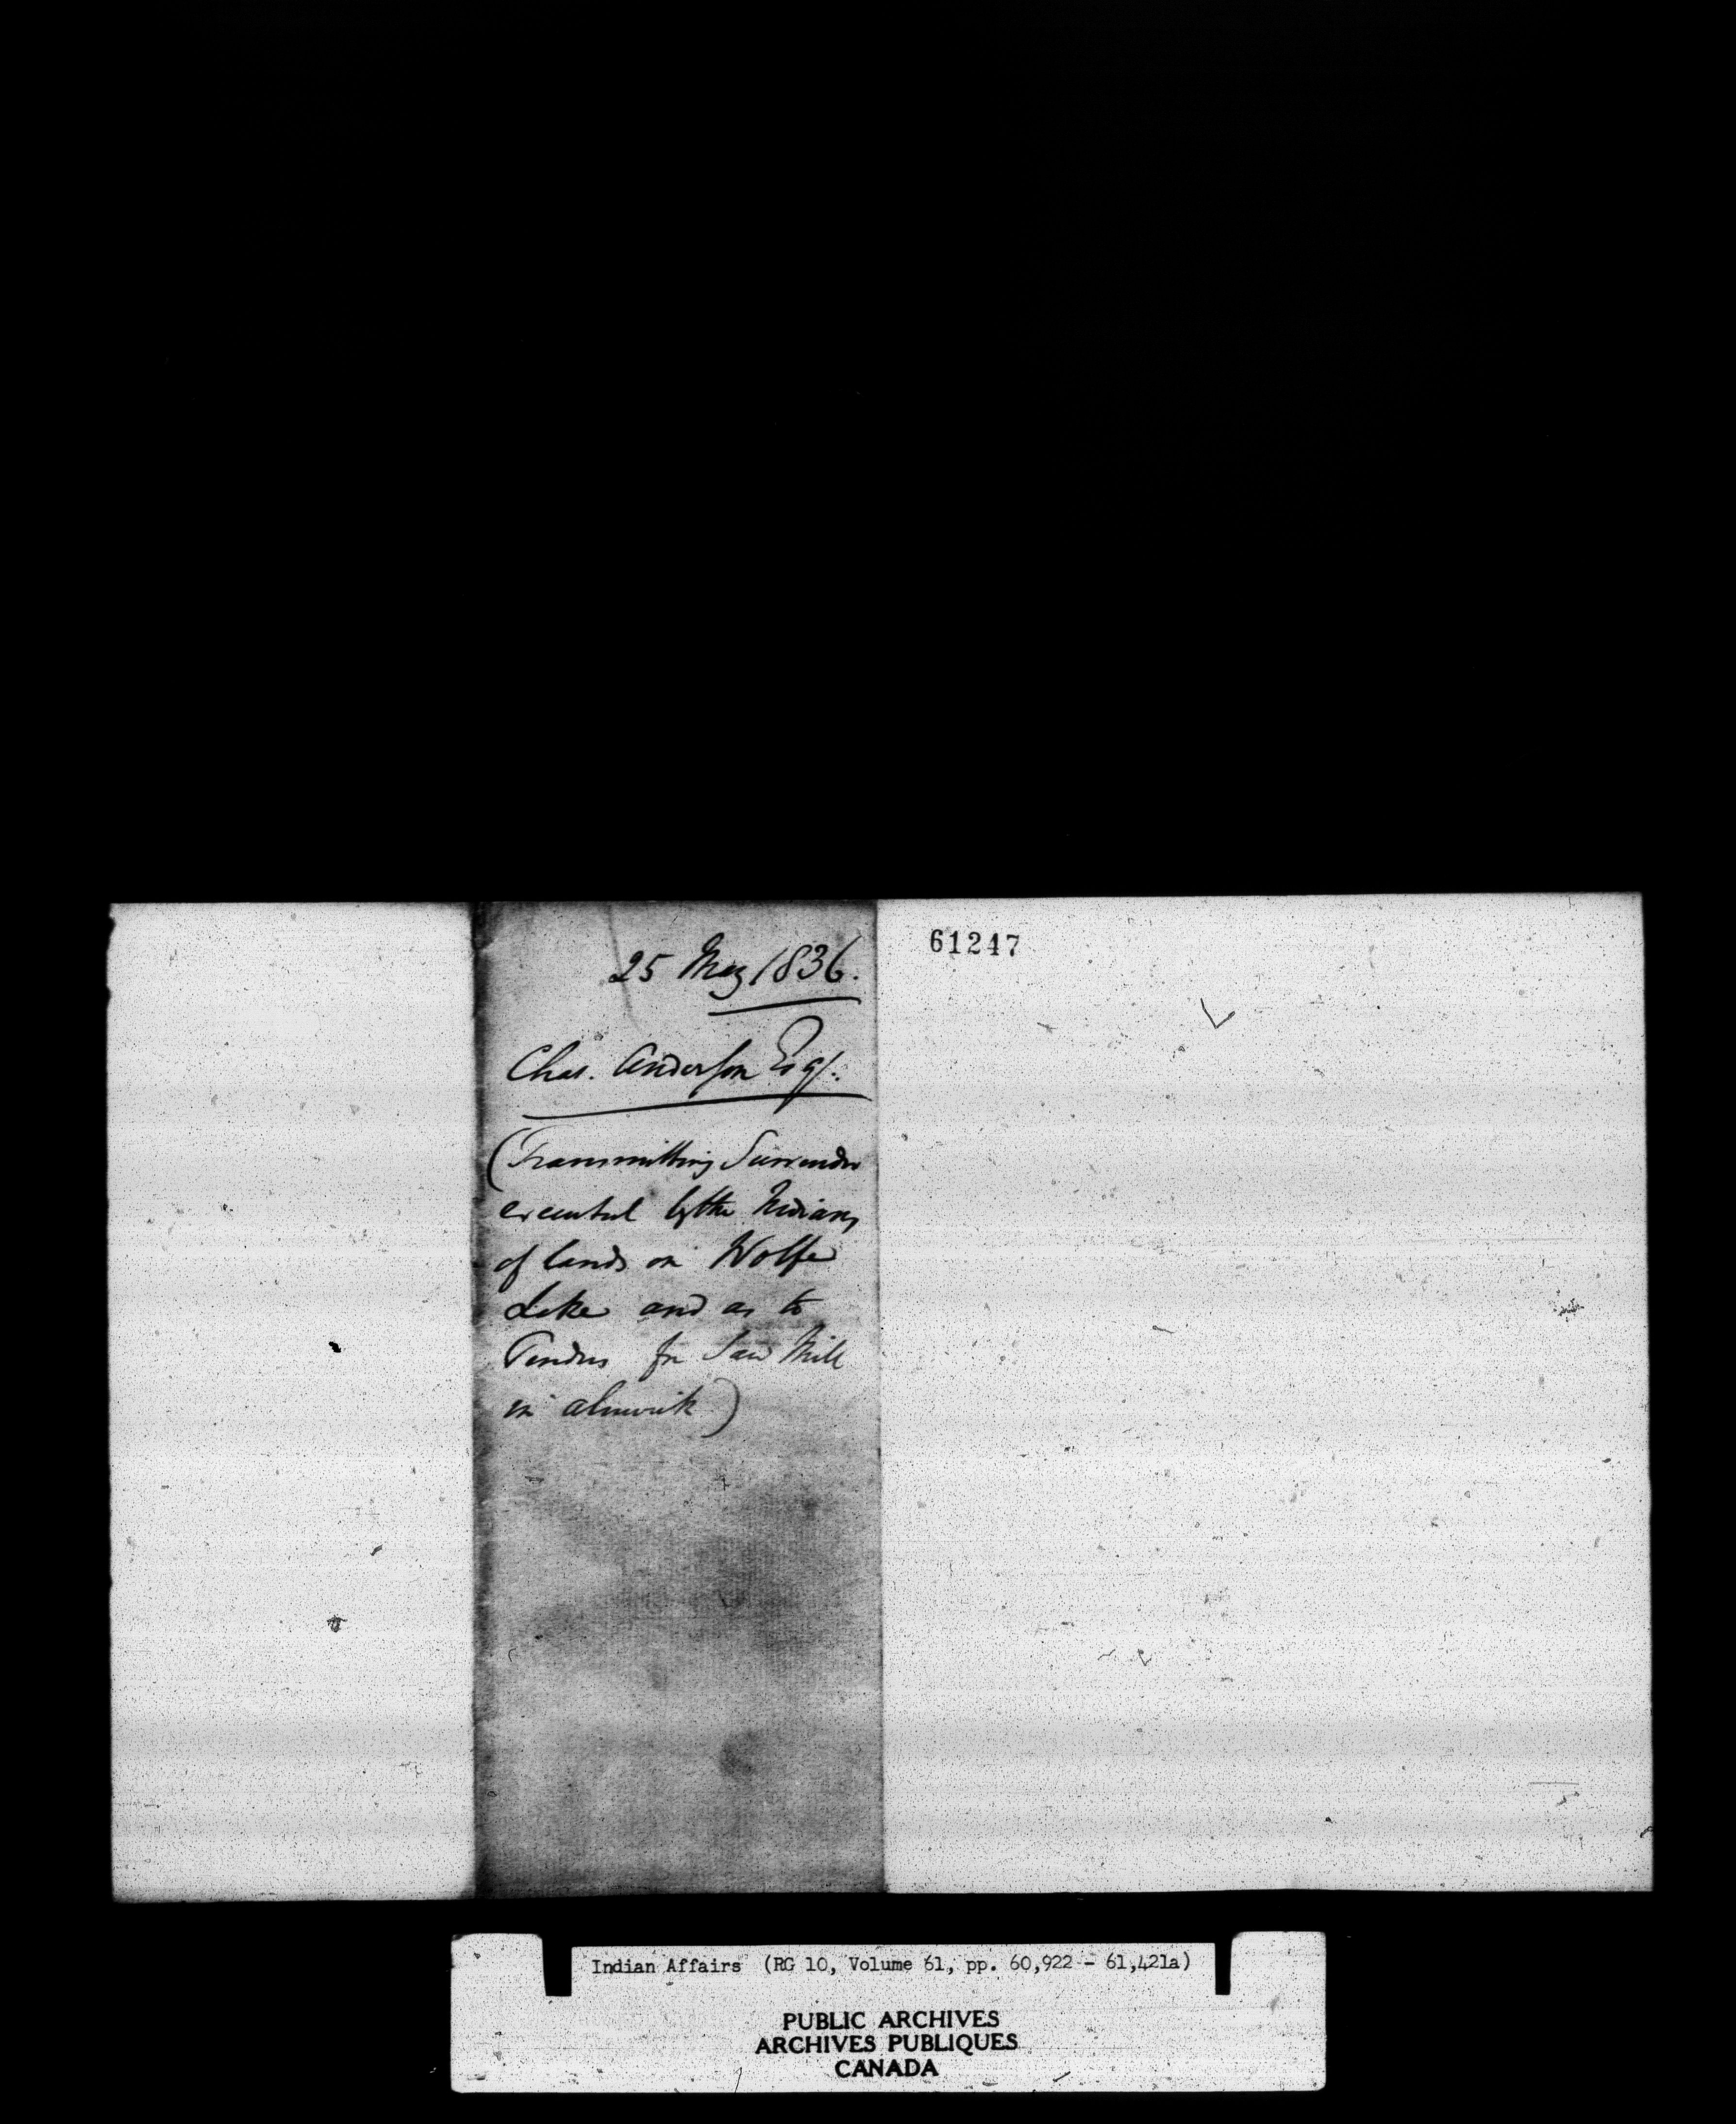 25 May 1836.
Chas. Anderson Esqr.
(Transmitting Surrender
executed by the Indians
of lands on Wolfe
Lake and as to
Tenders for Saw Mill
in Alnwick)
61247
Indian Affairs (RG 10, Volume 61, pp. 60,922 - 61,421a)
PUBLIC ARCHIVES
ARCHIVES PUBLIQUES
CANADA